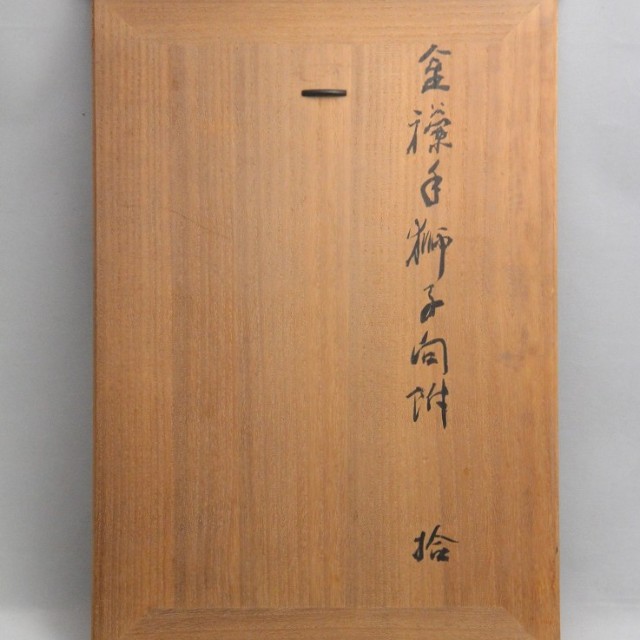 金襴手獅子向附 拾